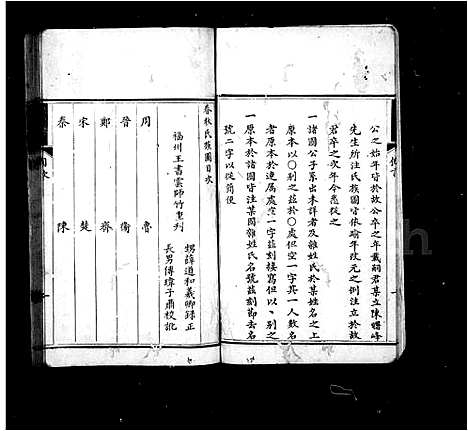 公之始年皆於故公卒之年戴嗣君某立陳曙峰
先生所注氏族圖皆依踰年改元之例注立於故
君卒之次年今悉從之
一諸國公子系出未詳者及雜姓氏於某姓名之上
原本以〇別之茲於〇處但空一字其一人數名
者原本於連屬處空一字茲刻接寫但以、別之
一原本於諸國皆注某國雜姓氏名號茲刻節去名
號二字以從簡便
春秋氏族圖目次
福州王書雲師竹重刋
甥薛道和羲卿錄正
長男傳瑋子肅校訛
周 魯
晉 衛
鄭 齊
宋 楚
秦 陳